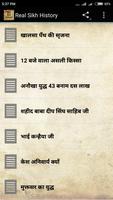 5:37 PM
Real Sikh History
खालसा पँथ की सृजना
12 बजे वाला असली किस्सा
अनोखा युद्ध 40 बनाम दस लाख
शहीद बाबा दीप सिंघ साहिब जी
भाई कन्हैया जी
केश अनिवार्य क्यों
मुक्तसर का युद्ध